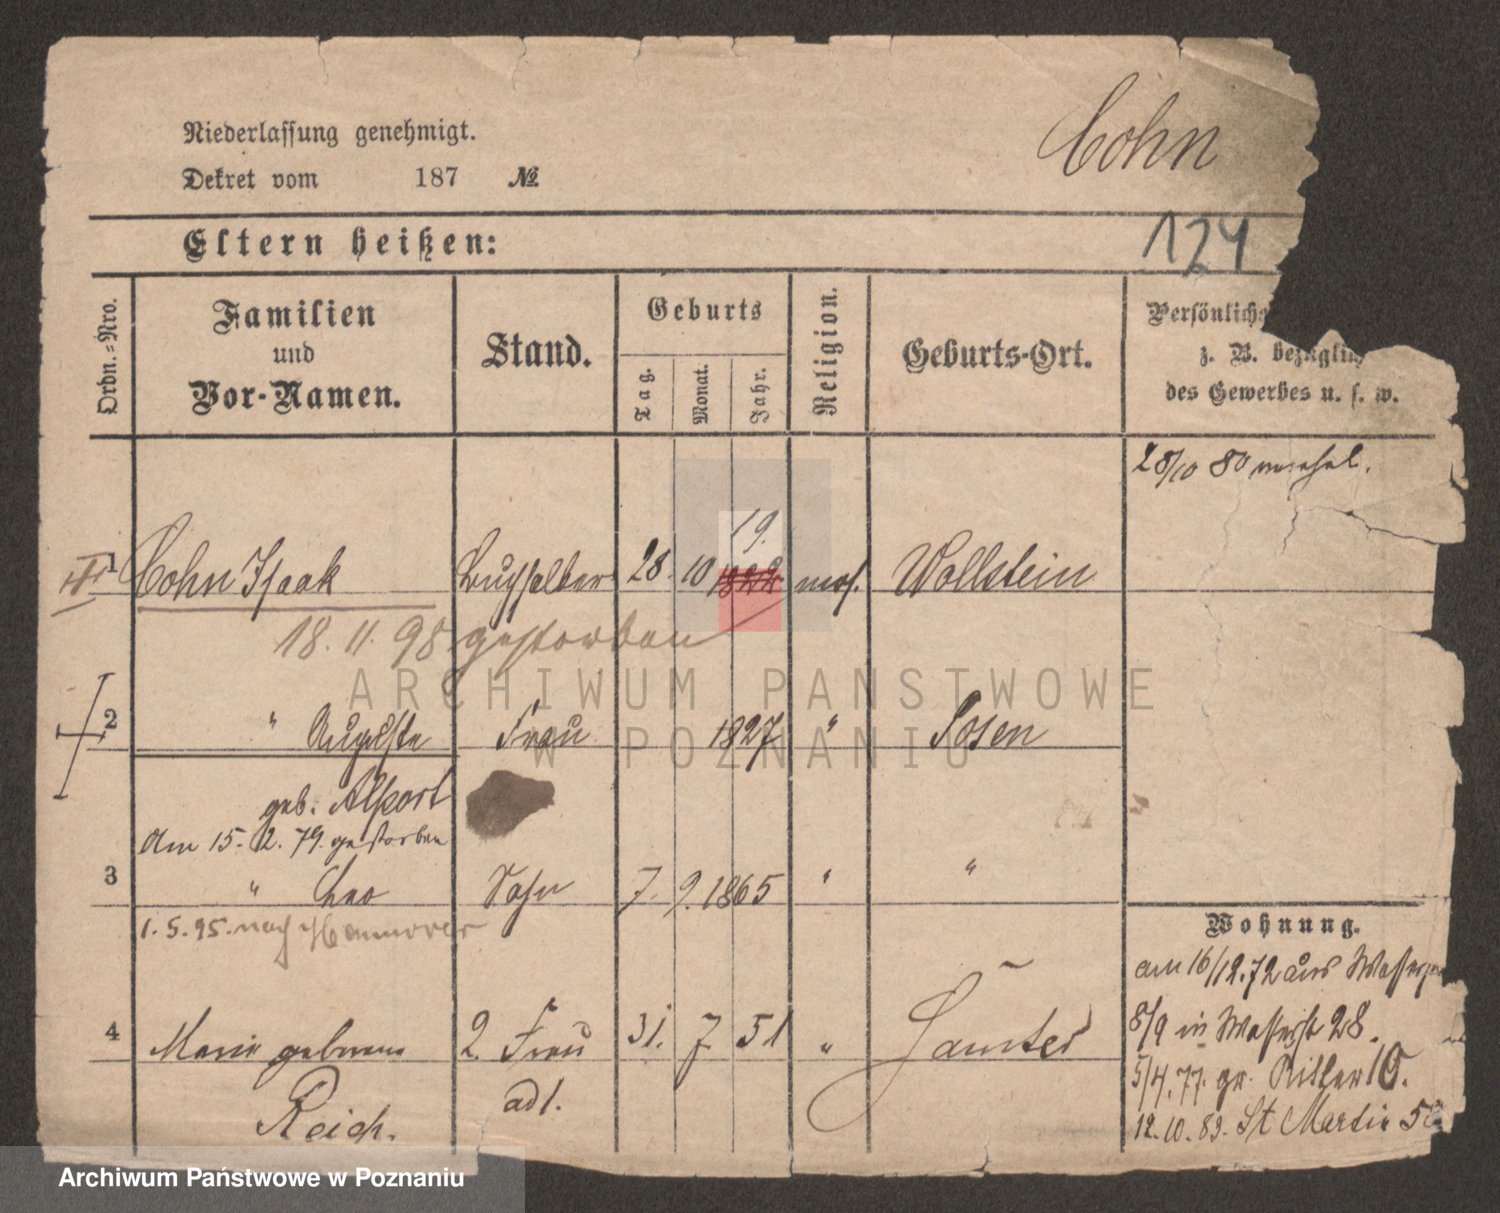 Cohn
Niederlassung genehmigt.
Dekret vom 187 №
124
Eltern heißen:
Ordn.-Nro. Familien und Vor-Namen. Stand. Geburts Tag. Monat. Jahr. Religion. Geburts-Ort. Persönlich
z. B. bezüglich
des Gewerbes u. s. w.
28/10 80
19.
1 Cohn Isaak Buchhalter 28. 10 1822 mos. Wollstein
18. 11. 98 gestorben
ARCHIWUM PAŃSTWOWE
W POZNANIU
2 " Auguste Frau 1827 " Posen
geb. Alport
Am 15. 2. 79. gestorben
3 " Leo Sohn 7. 9. 1865 " "
1. 5. 95. nach Hannover
Wohnung.
am 16/12. 72 aus
8/9 in Wasserst 28.
4 Marie geborene 2. Frau 31. 7. 51 " Samter
5/4. 77. gr. Ritter 10.
Reich. adl.
12. 10. 89. St Martin
Archiwum Państwowe w Poznaniu